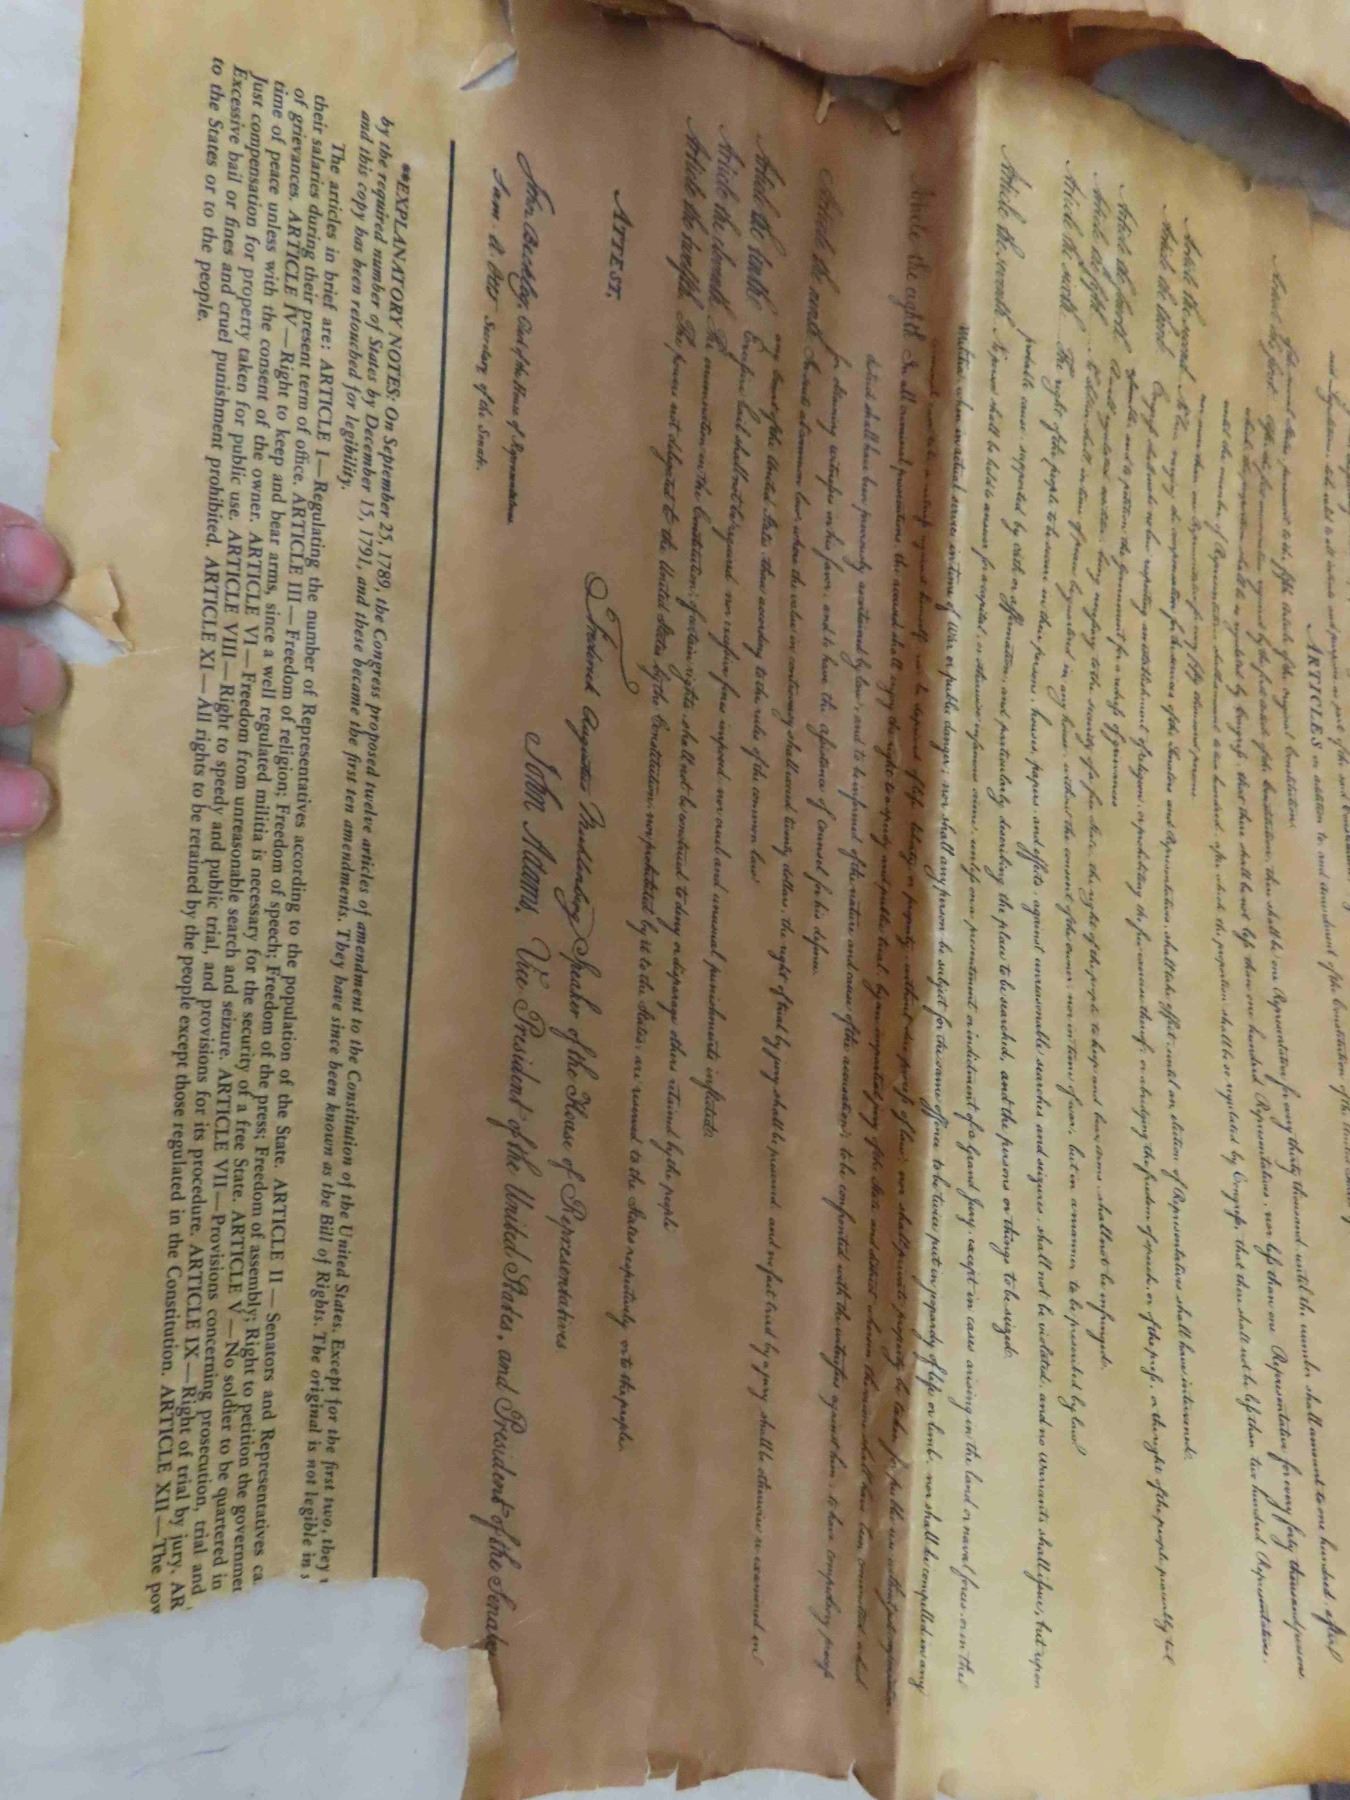 ARTICLES in addition to, and amendment of the Constitution of the United States
after the first enumeration required by the first article of the Constitution, there shall be one Representative for every thirty thousand, until the number shall amount to one hundred, after
which the proportion shall be so regulated by Congress, that there shall be not less than one hundred Representatives, nor less than one Representative for every forty thousand persons,
until the number of Representatives shall amount to two hundred, after which the proportion shall be so regulated by Congress, that there shall not be less than two hundred Representatives,
nor more than one Representative for every fifty thousand persons.
Article the second. No law, varying the compensation for the services of the Senators and Representatives, shall take effect, until an election of Representatives shall have intervened.
Article the third. Congress shall make no law respecting an establishment of religion, or prohibiting the free exercise thereof; or abridging the freedom of speech, or of the press; or the right of the people peaceably to
assemble, and to petition the Government for a redress of grievances
Article the fourth. A well regulated militia, being necessary to the security of a free State, the right of the people to keep and bear arms, shall not be infringed.
Article the fifth. No Soldier shall, in time of peace be quartered in any house, without the consent of the owner, nor in time of war, but in a manner to be prescribed by law.
Article the sixth. The right of the people to be secure in their persons, houses, papers, and effects, against unreasonable searches and seizures, shall not be violated, and no Warrants shall issue, but upon
probable cause, supported by oath or affirmation, and particularly describing the place to be searched, and the persons or things to be seized.
Article the seventh. No person shall be held to answer for a capital, or otherwise infamous crime, unless on a presentment or indictment of a Grand Jury, except in cases arising in the land or naval forces, or in the
Militia, when in actual service in time of War or public danger; nor shall any person be subject for the same offence to be twice put in jeopardy of life or limb, nor shall be compelled in any
nor be deprived of life, liberty, or property, without due process of law; nor shall private property be taken for public use without just compensation.
Article the eighth. In all criminal prosecutions, the accused shall enjoy the right to a speedy and public trial, by an impartial jury of the State and district wherein the crime shall have been committed, which
district shall have been previously ascertained by law, and to be informed of the nature and cause of the accusation; to be confronted with the witnesses against him; to have compulsory process
for obtaining witnesses in his favor, and to have the assistance of counsel for his defence.
Article the ninth. In suits at common law, where the value in controversy shall exceed twenty dollars, the right of trial by jury shall be preserved, and no fact tried by a jury, shall be otherwise re-examined in
any Court of the United States, than according to the rules of the common law.
Article the tenth. Excessive bail shall not be required, nor excessive fines imposed, nor cruel and unusual punishments inflicted.
Article the eleventh. The enumeration in the Constitution, of certain rights, shall not be construed to deny or disparage others retained by the people.
Article the twelfth. The powers not delegated to the United States by the Constitution, nor prohibited by it to the States, are reserved to the States respectively, or to the people.
ATTEST,
Frederick Augustus Muhlenberg Speaker of the House of Representatives
John Adams, Vice-President of the United States, and President of the Senate
John Beckley, Clerk of the House of Representatives.
Sam. A. Otis Secretary of the Senate.
**EXPLANATORY NOTES: On September 25, 1789, the Congress proposed twelve articles of amendment to the Constitution of the United States. Except for the first two, they
by the required number of States by December 15, 1791, and these became the first ten amendments. They have since been known as the Bill of Rights. The original is not legible in
and this copy has been retouched for legibility.
The articles in brief are: ARTICLE I—Regulating the number of Representatives according to the population of the State. ARTICLE II — Senators and Representatives ca
their salaries during their present term of office. ARTICLE III — Freedom of religion; Freedom of speech; Freedom of the press; Freedom of assembly; Right to petition the governmen
of grievances. ARTICLE IV—Right to keep and bear arms, since a well regulated militia is necessary for the security of a free State. ARTICLE V —No soldier to be quartered in
time of peace unless with the consent of the owner. ARTICLE VI—Freedom from unreasonable search and seizure. ARTICLE VII—Provisions concerning prosecution, trial and
Just compensation for property taken for public use. ARTICLE VIII—Right to speedy and public trial, and provisions for its procedure. ARTICLE IX —Right of trial by jury. AR
Excessive bail or fines and cruel punishment prohibited. ARTICLE XI—All rights to be retained by the people except those regulated in the Constitution. ARTICLE XII—The pow
to the States or to the people.